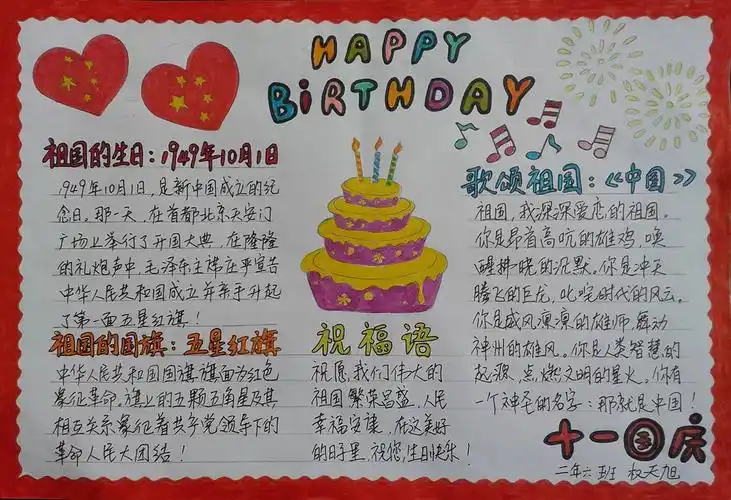 HAPPY
BiRTHDAY
祖国的生日：1949年10月1日
1949年10月1日，是新中国成立的纪
念日。那一天，在首都北京天安门
广场上举行了开国大典，在隆隆
的礼炮声中，毛泽东主席庄严宣告
中华人民共和国成立并亲手升起
了第一面五星红旗！
祖国的国旗：五星红旗
中华人民共和国国旗旗面为红色
象征革命。旗上的五颗五角星及其
相互关系象征着共产党领导下的
革命人民大团结！
祝福语
祝愿，我们伟大的
祖国繁荣昌盛，人民
幸福安康，在这美好
的日子里，祝您，生日快乐！
歌颂祖国：《中国》
祖国，我深深爱恋的祖国。
你是昂首高吭的雄鸡，唤
醒拂晓的沉默。你是冲天
腾飞的巨龙，叱咤时代的风云。
你是威风凛凛的雄师，舞动
神州的雄风。你是人类智慧的
起源，点燃文明的星火。你有
一个神圣的名字：那就是中国！
十一国庆
二年六班 权天旭